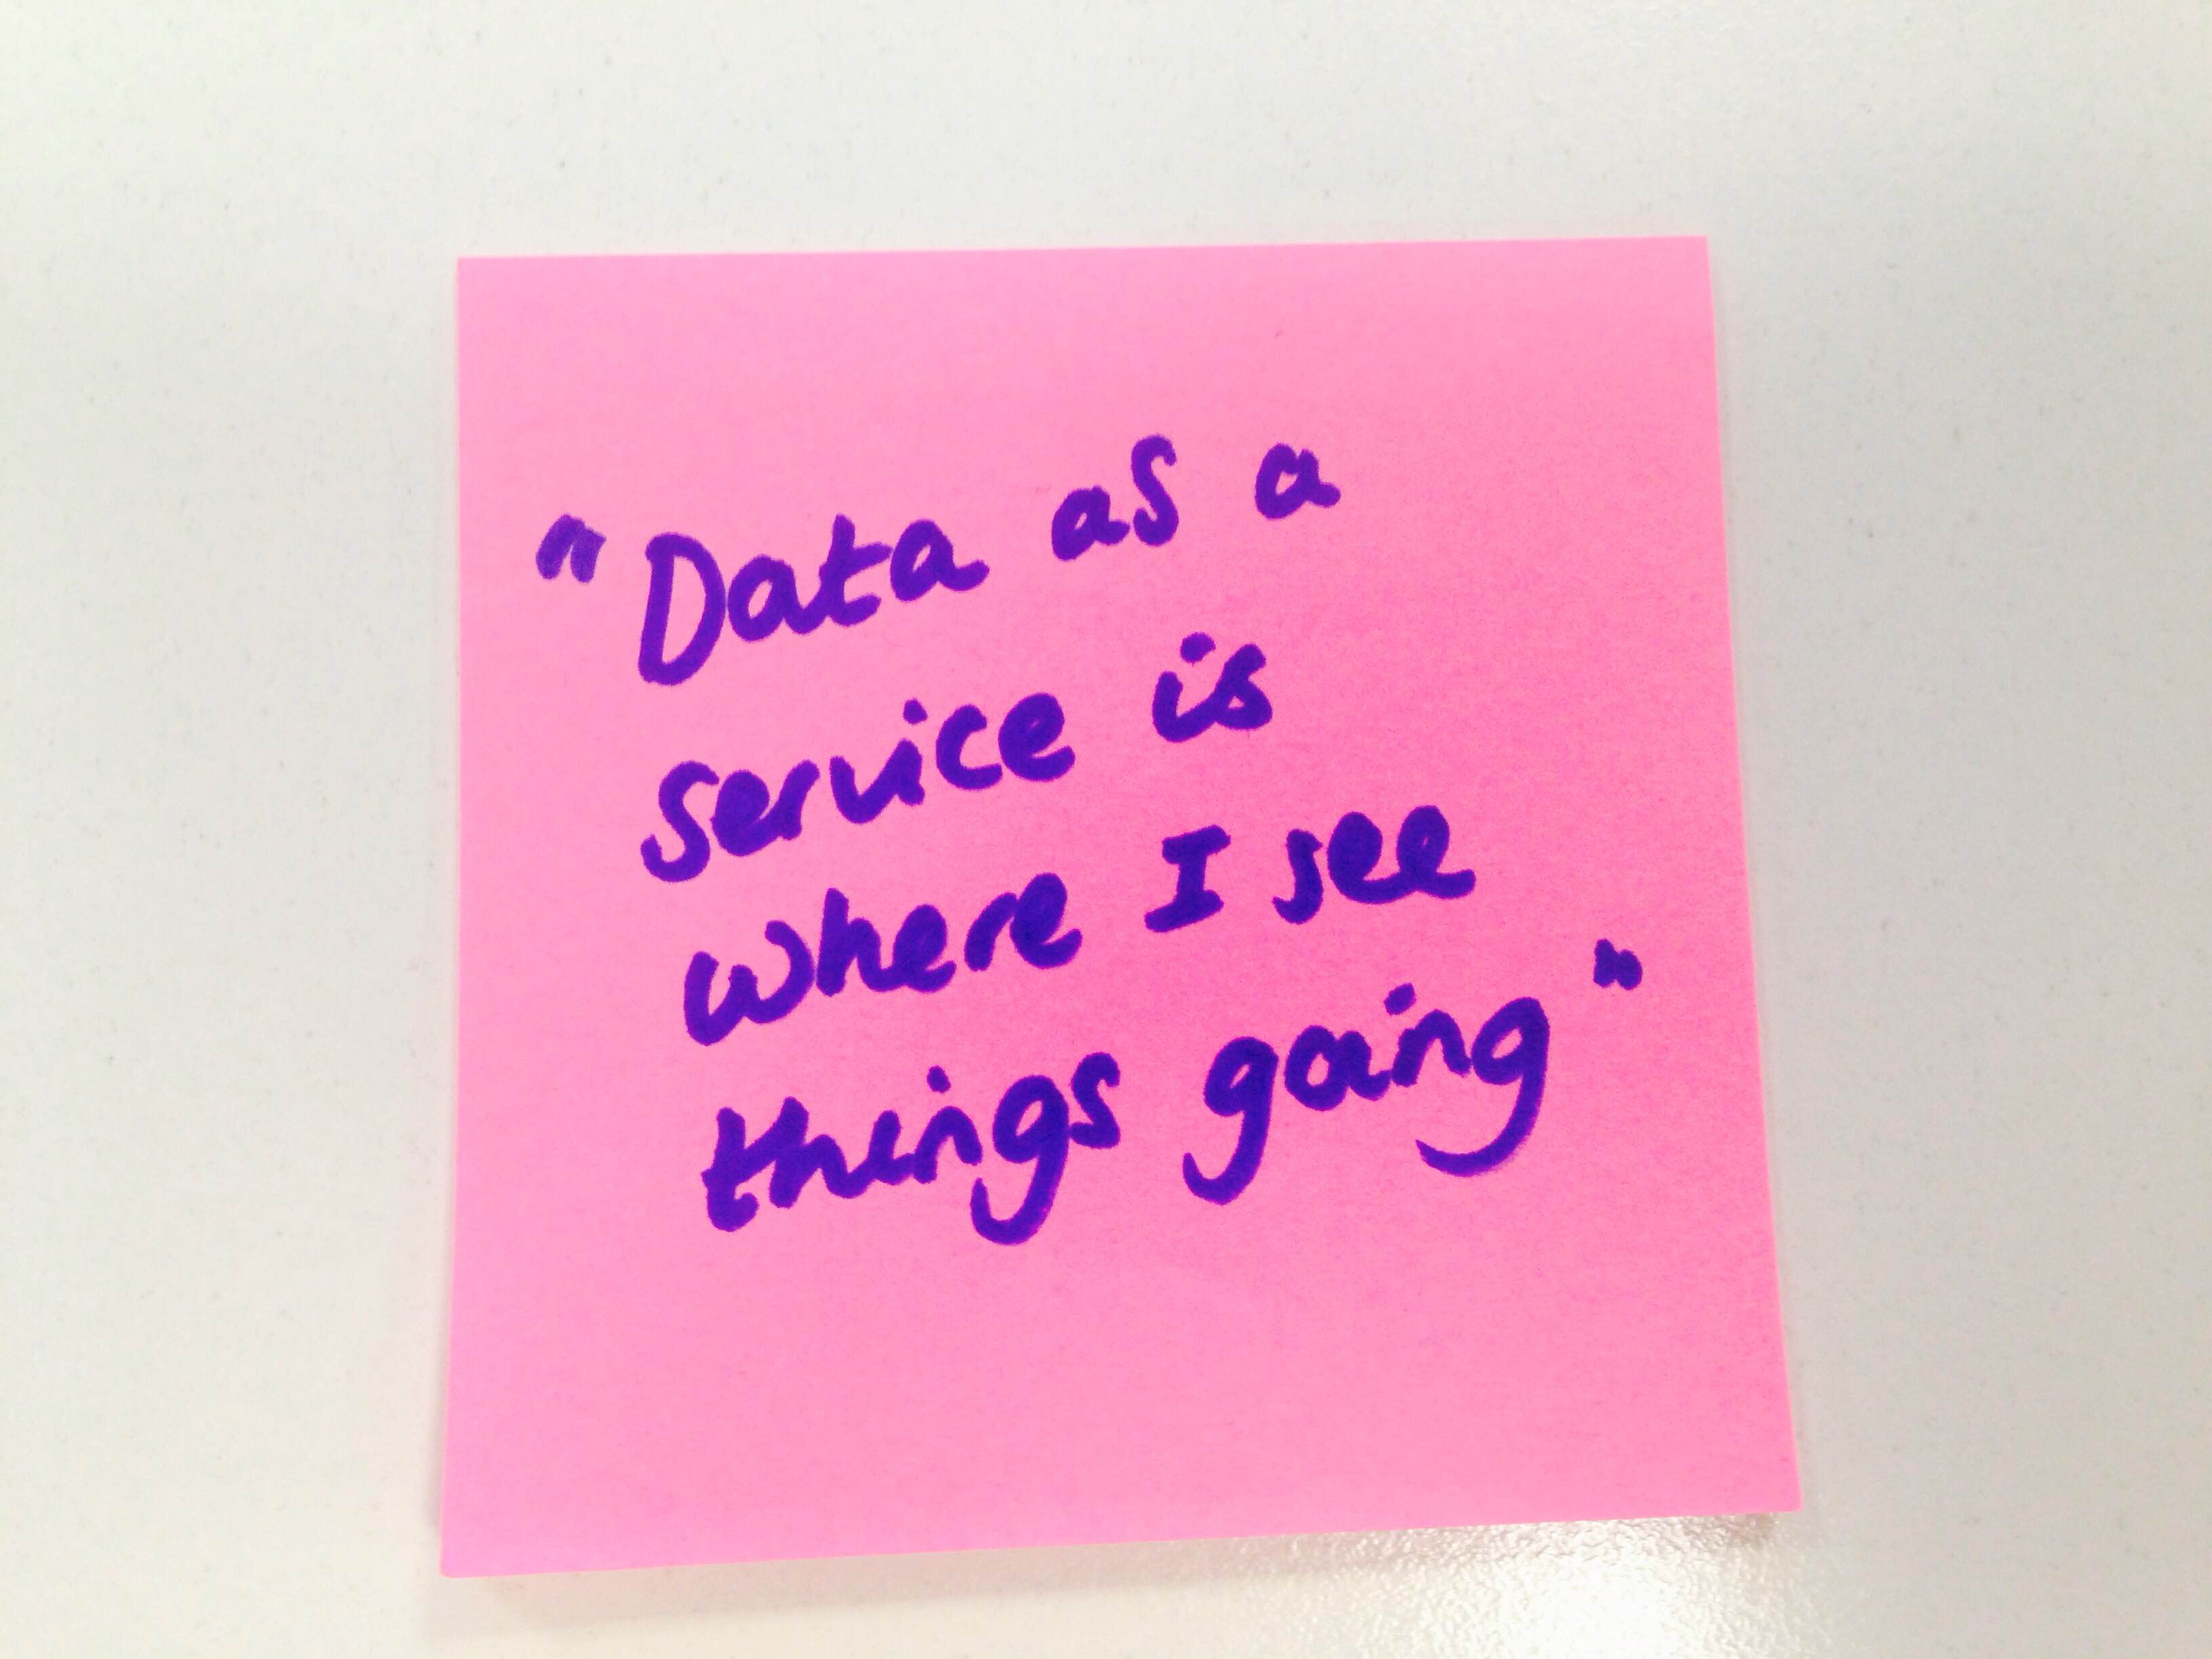 "Data as a
service is
where I see
things going"